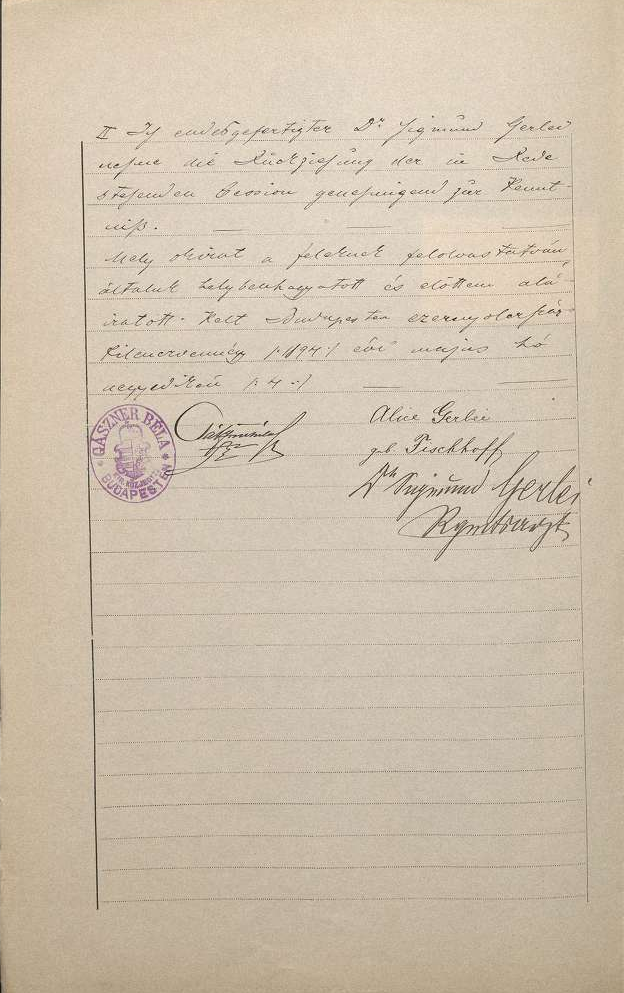 II Ich endesgefertigter Dr Sigmund Gerlei
nehme die Rückziehung der in Rede
stehenden Cession genehmigend zur Kennt-
niß.
Mely okirat a feleknek felolvastatván,
általuk helybenhagyatott és előttem alá-
iratott. Kelt Budapesten ezernyolczszáz-
kilenczvennégy /:1894:/ évi május hó
negyedikén /:4.:/
GÁSZNER BÉLA
KIR. KÖZJEGYZŐ
BUDAPESTEN
Alice Gerlei
geb. Fischhoff
Dr Sigmund Gerlei
Rgmtsarzt